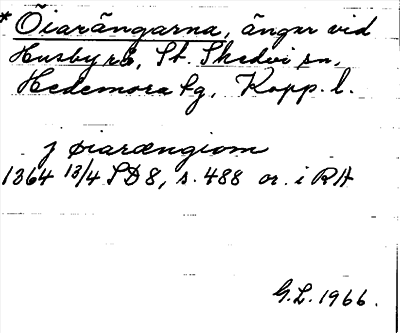 * Öiarängarna, ängar vid
Husbyrå, St. Skedvi sn,
Hedemora tg, Kopp. l.
j øiarængiom
1364 13/4 SD 8, s. 488 or. i RA
G.L. 1966.